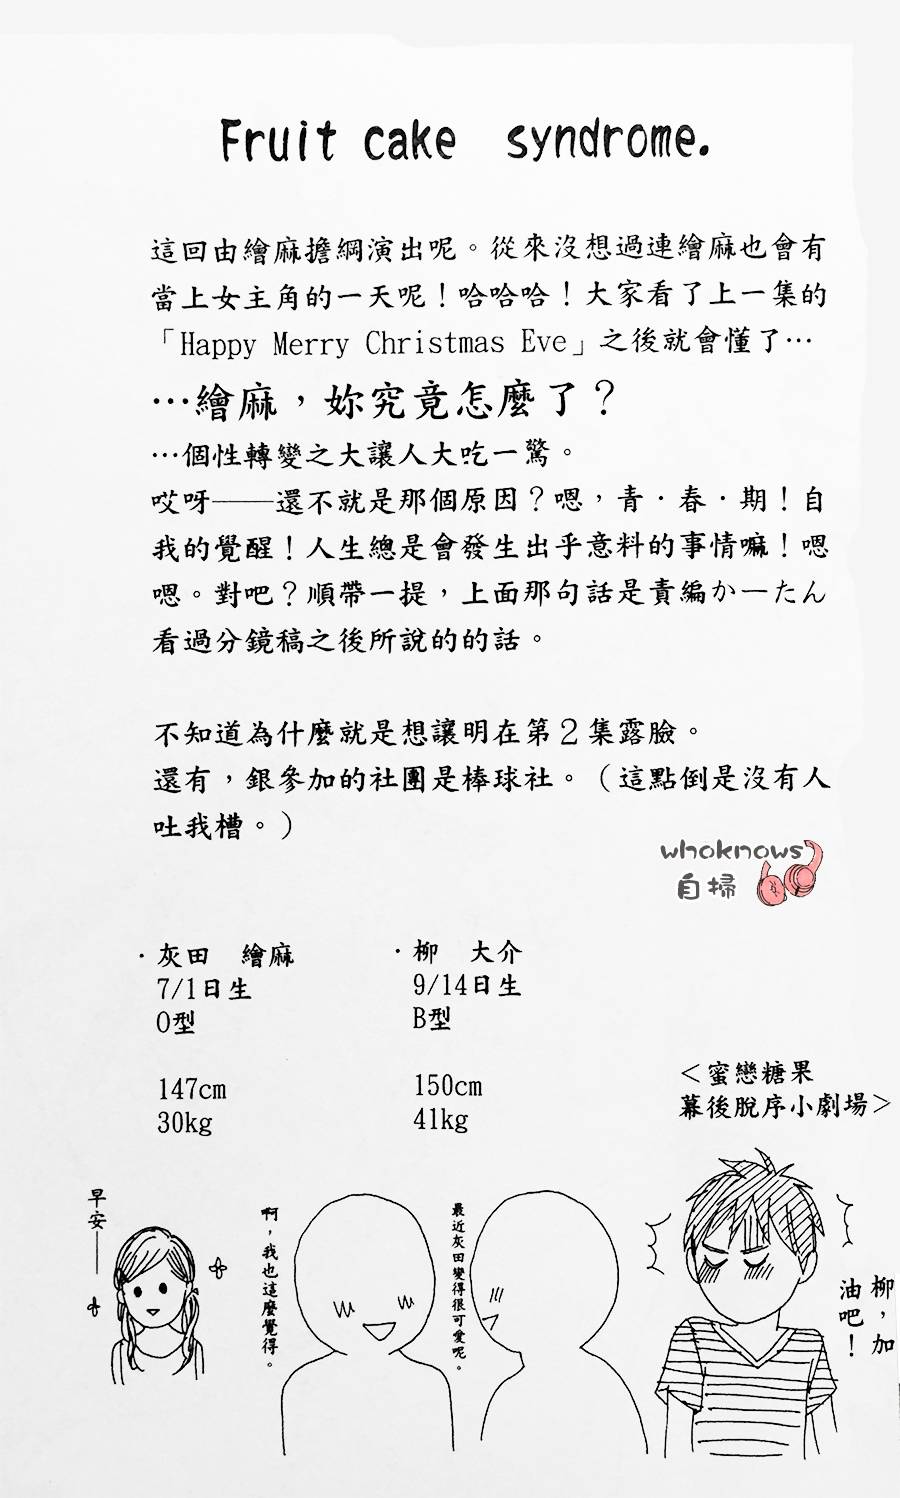 Fruit cake syndrome.
這回由繪麻擔綱演出呢。從來沒想過連繪麻也會有
當上女主角的一天呢！哈哈哈！大家看了上一集的
「Happy Merry Christmas Eve」之後就會懂了…
…繪麻，妳究竟怎麼了？
…個性轉變之大讓人大吃一驚。
哎呀——還不就是那個原因？嗯，青・春・期！自
我的覺醒！人生總是會發生出乎意料的事情嘛！嗯
嗯。對吧？順帶一提，上面那句話是責編かーたん
看過分鏡稿之後所說的的話。
不知道為什麼就是想讓明在第２集露臉。
還有，銀參加的社團是棒球社。（這點倒是沒有人
吐我槽。）
whoknows
自掃
・灰田　繪麻
7/1日生
O型
147cm
30kg
・柳　大介
9/14日生
B型
150cm
41kg
＜蜜戀糖果
幕後脫序小劇場＞
早安——
啊，我也這麼覺得。
最近灰田變得很可愛呢。
柳，加
油吧！